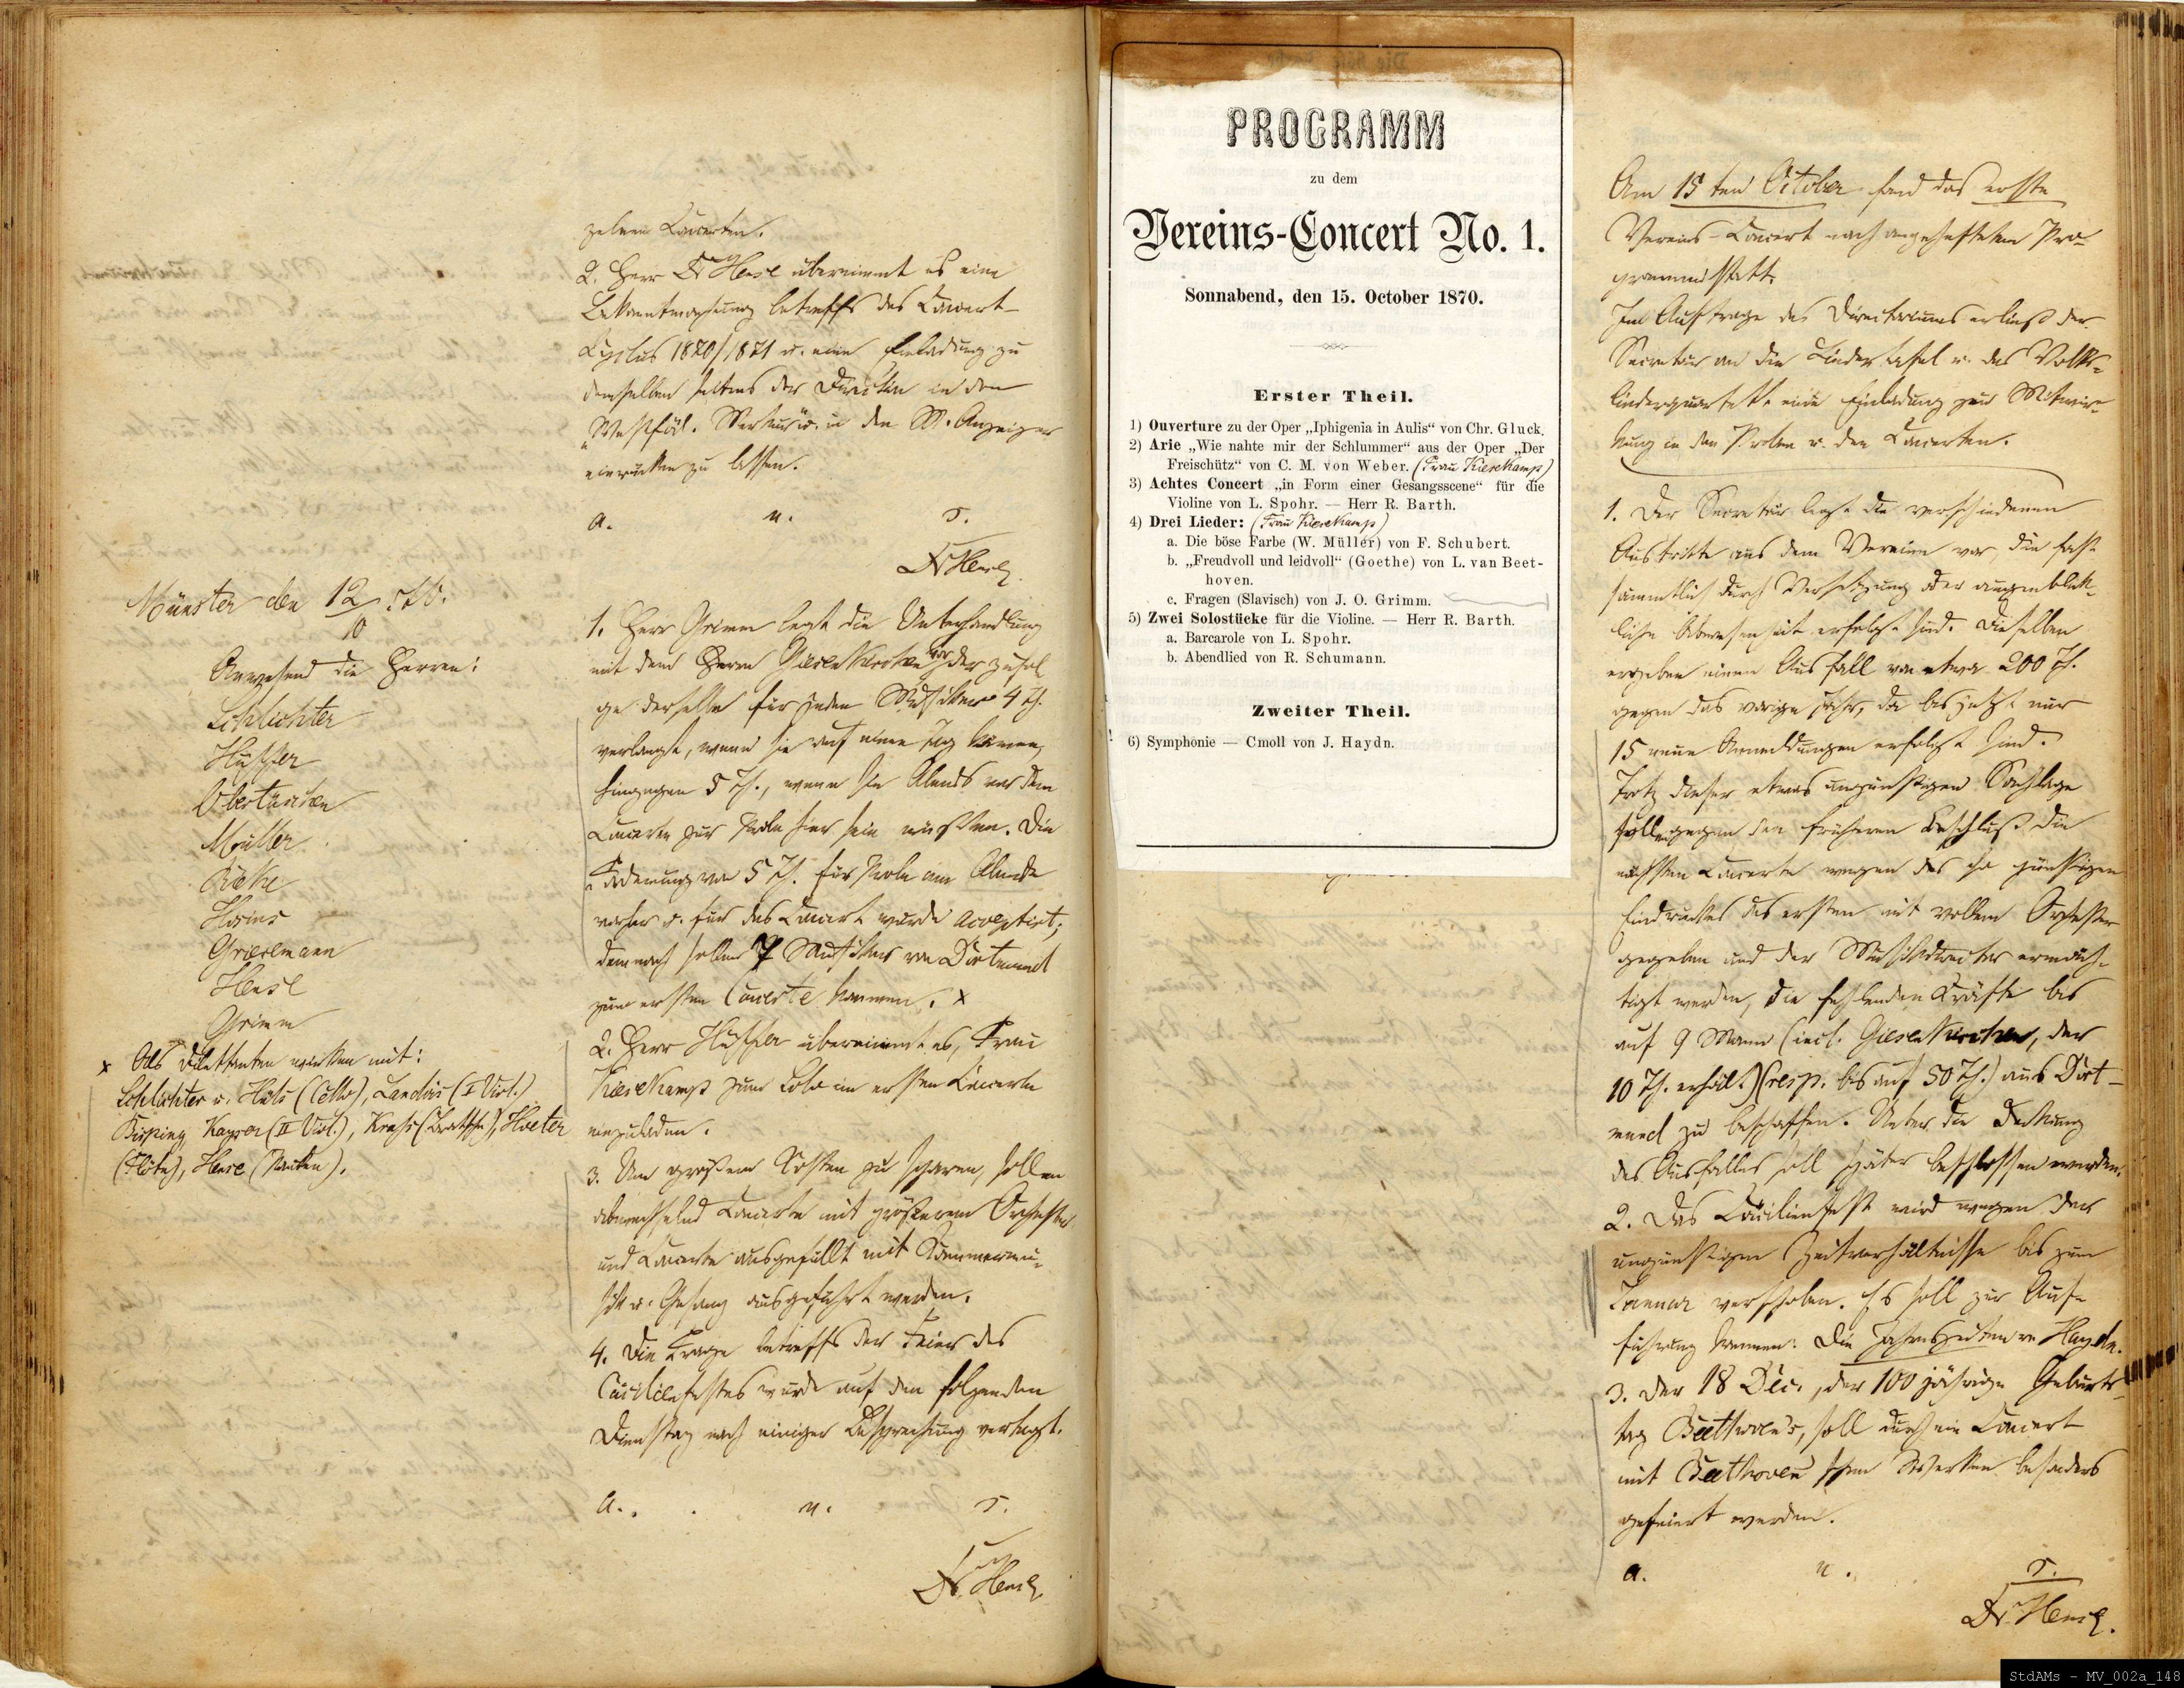 zelnen Concerten.
2. Herr Dr Hense übernimmt es eine
Bekanntmachung betreffs des Concert-
Cyclus 1870/1871 u. eine Einladung zu
demselben seitens der Direction in den
Westfäl. Merkur u. in den M. Anzeiger
einrücken zu lassen.
a. u. s.
Dr Hense.
Münster den 12/10 70.
Anwesend die Herren:
Schlichter
Hüffer
Obertüschen
Müller
Hense
Grimm
x Als Dilettanten wirken mit:
Schlichter u. (Cello), Landois (I Viol.)
Bisping Kayser (II Viol.), (Bratsche), Hoeter
(Flöte), Hense (Pauken).
1. Herr Grimm legt die Unterhandlung
mit dem Herrn Giesenkirchen vor, der zufol
ge derselbe für jeden Musiker 4 Th.
verlangt, wenn sie auf einen Tag kämen,
hingegen 5 Th., wenn sie Abends vor dem
Concerte zur Probe hier sein müßten. Die
Forderung von 5 Th. für Probe am Abende
vorher u. für das Concert wurde acceptirt;
demnach sollen 7 Musiker von Dortmund
zum ersten Concerte kommen. x
2. Herr Hüffer übernimmt es, Frau
Kiesekamp zum Solo im ersten Concerte
einzuladen.
3. Um größere Kosten zu sparen, sollen
abwechselnd Concerte mit größerem Orchester
und Concerte ausgefüllt mit Kammermu-
sik u. Gesang ausgeführt werden.
4. Die Frage betreffs der Feier des
Cäcilienfestes wurde auf den folgenden
Dienstag nach einiger Besprechung vertagt.
a. u. s.
Dr. Hense.
PROGRAMM
zu dem
Vereins-Concert No. 1.
Sonnabend, den 15. October 1870.
Erster Theil.
1) Ouverture zu der Oper „Iphigenia in Aulis“ von Chr. Gluck.
2) Arie „Wie nahte mir der Schlummer“ aus der Oper „Der
Freischütz“ von C. M. von Weber. (Frau Kiesekamp)
3) Achtes Concert „in Form einer Gesangsscene“ für die
Violine von L. Spohr. — Herr R. Barth.
4) Drei Lieder: (Frau Kiesekamp)
a. Die böse Farbe (W. Müller) von F. Schubert.
b. „Freudvoll und leidvoll“ (Goethe) von L. van Beet-
hoven.
c. Fragen (Slavisch) von J. O. Grimm.
5) Zwei Solostücke für die Violine. — Herr R. Barth.
a. Barcarole von L. Spohr.
b. Abendlied von R. Schumann.
Zweiter Theil.
6) Symphonie — Cmoll von J. Haydn.
Am 15ten October fand das erste
Vereins-Concert nach angeheftetem Pro-
gramm statt.
Im Auftrage des Directoriums erließ der
Secretär an die Liedertafel u. das Volks-
liederquartett eine Einladung zur Mitwir-
kung in den Proben u. den Concerten.
1. Der Secretär legt die verschiedenen
Austritte aus dem Vereine vor, die fast
sämmtlich durch Versetzung oder augenblick-
liche Abwesenheit erfolgt sind. Dieselben
ergeben einen Ausfall von etwa 200 Th.
gegen das vorige Jahr, da bis jetzt nur
15 neue Anmeldungen erfolgt sind.
Trotz dieser etwas ungünstigen Sachlage
sollen gegen den früheren Beschluß die
nächsten Concerte wegen des so günstigen
Eindruckes des ersten mit vollem Orchester
gegeben und der Musikdirector ermäch-
tigt werden, die fehlenden Kräfte bis
auf 9 Mann (incl. Giesenkirchen, der
10 Th. erhält) (resp. bis auf 50 Th.) aus Dort-
mund zu beschaffen. Ueber die Deckung
des Ausfalles soll später beschlossen werden.
2. Das Cäcilienfest wird wegen der
ungünstigen Zeitverhältnisse bis zum
Januar verschoben. Es soll zur Auf-
führung kommen: Die Jahreszeiten v. Haydn.
3. Der 18 Dec., der 100 jährige Geburts-
tag Beethoven's, soll durch ein Concert
mit Beethoven'schen Werken besonders
gefeiert werden.
a. u. s.
Dr. Hense.
StdAMs - MV_002a_148